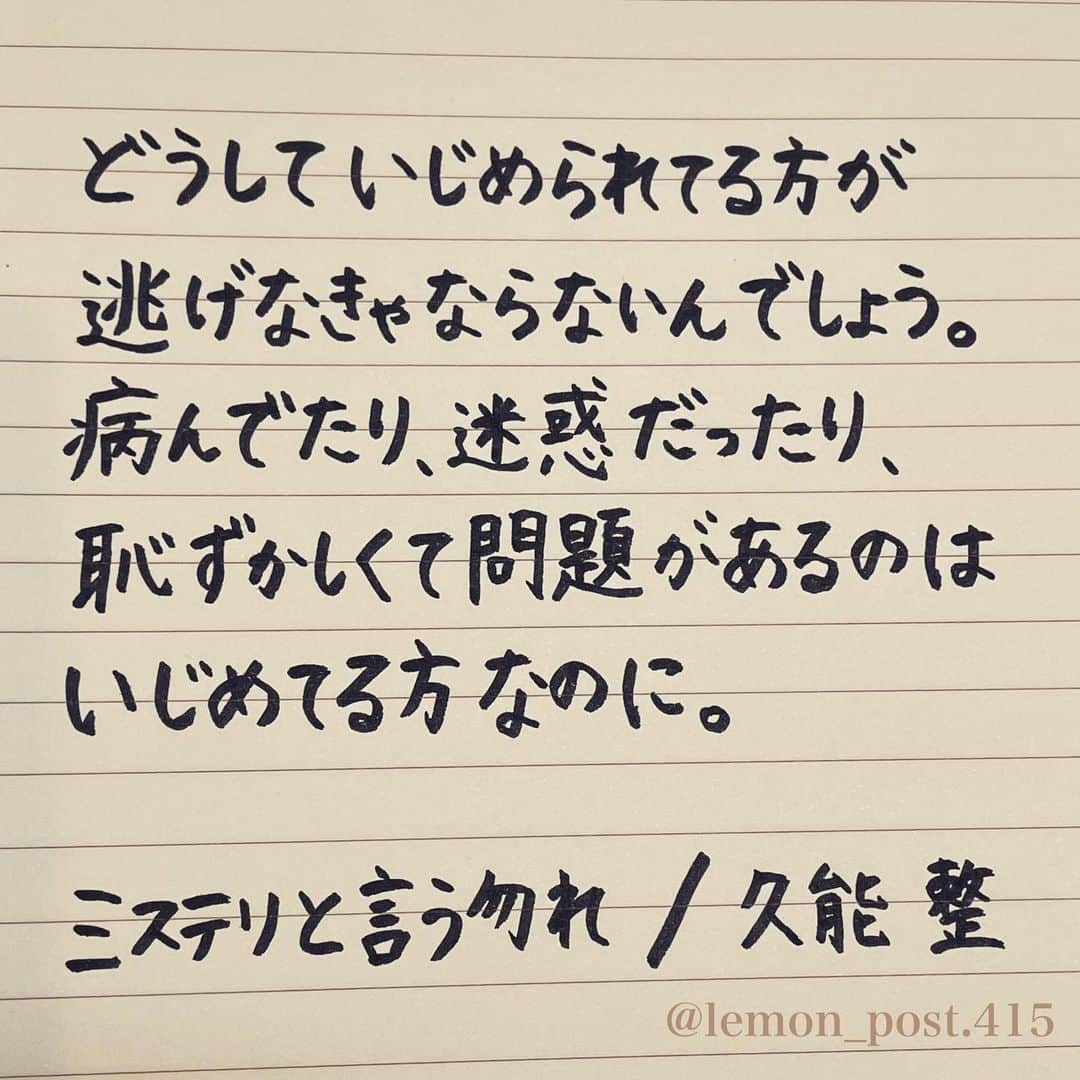 どうしていじめられてる方が
逃げなきゃならないんでしょう。
病んでたり、迷惑だったり、
恥ずかしくて問題があるのは
いじめてる方なのに。
ミステリと言う勿れ / 久能 整
@lemon_post.415